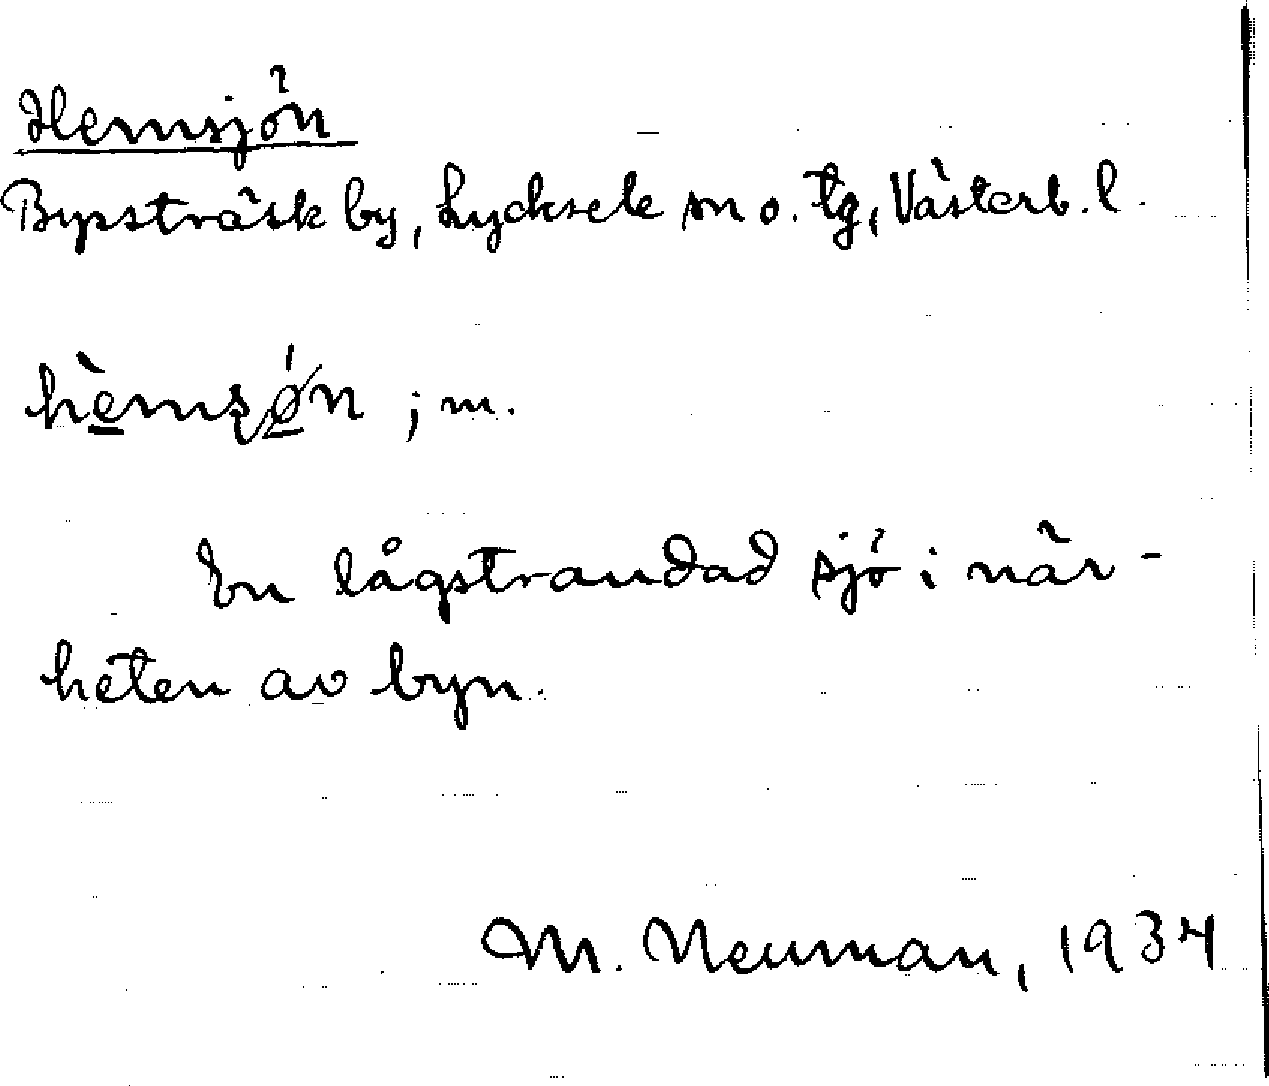 Hemsjön
Bysträsk by, Lycksele sn o. tg, Västerb. l.
; m.
En lågstrandad sjö i när-
heten av byn.
M. Neuman, 1934